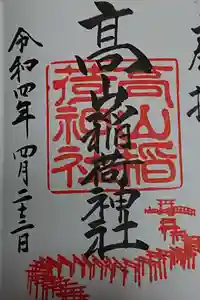 奉拝
高山稲荷神社
高山稲
荷神社
令和四年 四月二十三日